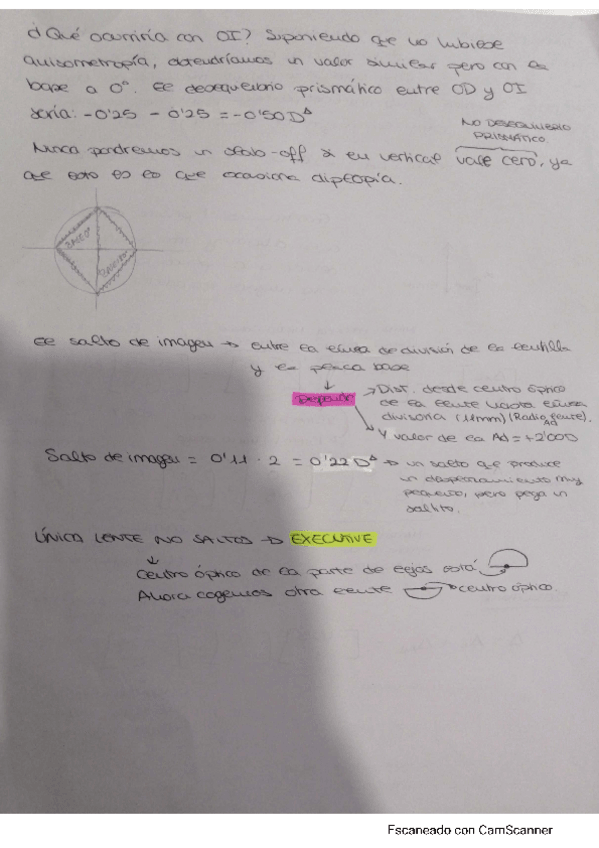 ¿Qué ocurriría con OI? Suponiendo que no hubiese
anisometropía, obtendríamos un valor similar pero con la
base a 0°. El desequilibrio prismático entre OD y OI
sería: -0'25 - 0'25 = -0'50 D^Δ
NO DESEQUILIBRIO
PRISMÁTICO
Nunca pondremos un slab-off si en vertical vale cero, ya
que esto es lo que ocasiona diplopía.
El salto de imagen → entre la línea de división de la lentilla
y la pieza base
Depende
→ Dist. desde centro óptico
de la lente hasta línea
divisoria (11mm) (Radio lente).
Ad
Y valor de la Ad = +2'00D
Salto de imagen = 0'11 · 2 = 0'22 D^Δ → un salto que produce
un desplazamiento muy
pequeño, pero pega un
saltito.
ÚNICA LENTE NO SALTOS → EXECUTIVE
Centro óptico de la parte de lejos está:
Ahora cogemos otra lente → centro óptico.
Escaneado con CamScanner